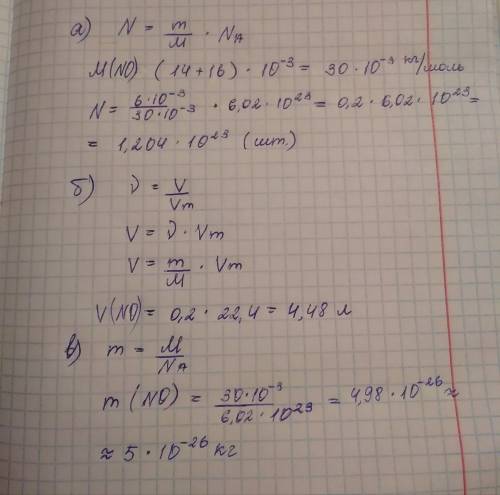 а) N = m/M · NA
M(NO) (14+16) · 10⁻³ = 30 · 10⁻³ кг/моль
N = 6·10⁻³/30·10⁻³ · 6,02 · 10²³ = 0,2 · 6,02 · 10²³ =
= 1,204 · 10²³ (шт.)
б) ν = V/Vm
V = ν · Vm
V = m/M · Vm
V(NO) = 0,2 · 22,4 = 4,48 л
в) m = M/NA
m (NO) = 30·10⁻³/6,02·10²³ = 4,98 · 10⁻²⁶ ≈
≈ 5 · 10⁻²⁶ кг